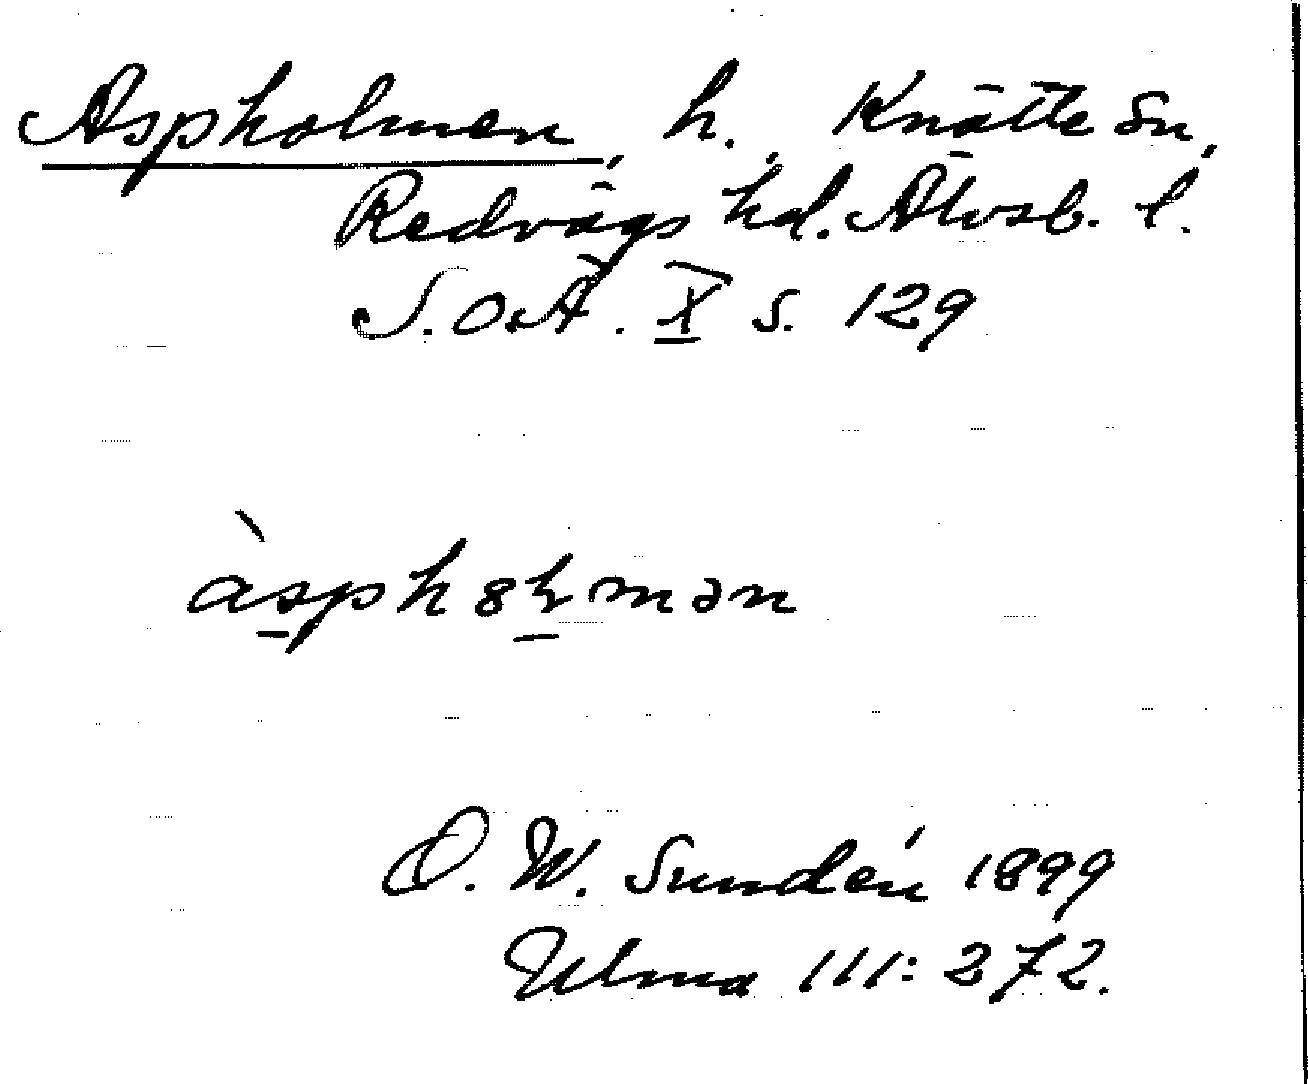 Aspholmen, h., Knätte sn,
Redvägs hd. Älvsb. l.
S.O.Ä. X s. 129
D. W. Sundén 1899
Ulma 111: 272.